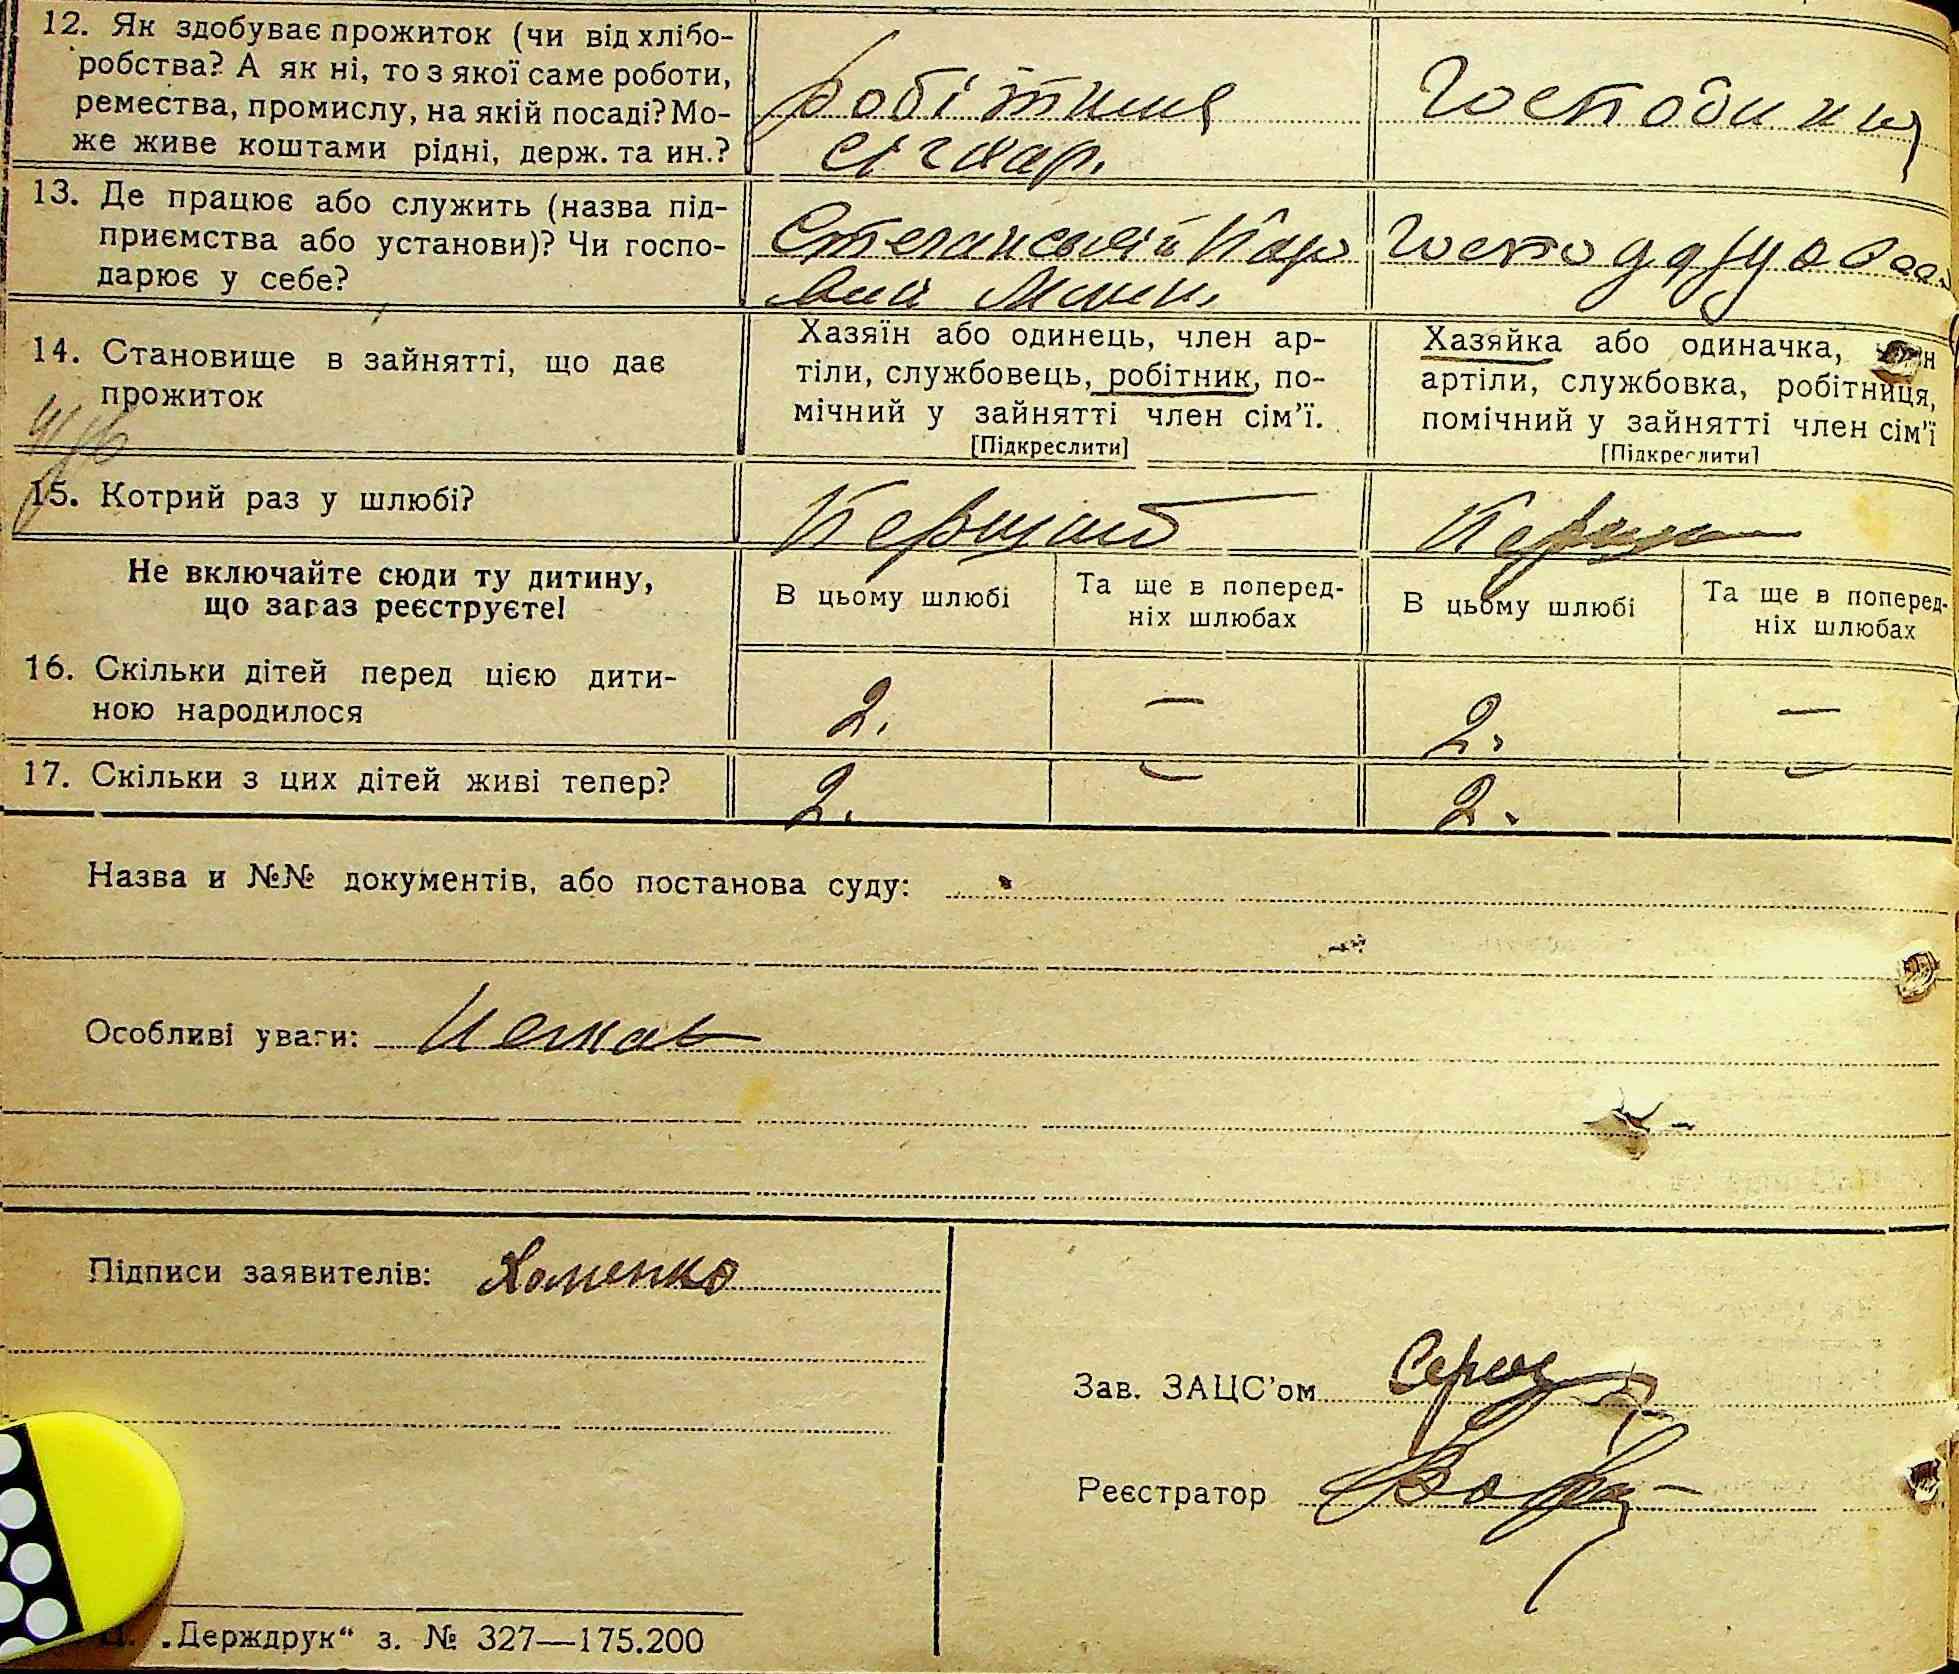 12. Як здобуває прожиток (чи від хлібо-
робства? А як ні, то з якої саме роботи,
ремества, промислу, на якій посаді? Мо-
же живе коштами рідні, держ. та ин.?
робітник
Господиня
13. Де працює або служить (назва під-
приємства або установи)? Чи госпо-
дарює у себе?
14. Становище в зайнятті, що дає
прожиток
Хазяїн або одинець, член ар-
тіли, службовець, робітник, по-
мічний у зайнятті член сім'ї.
[Підкреслити]
Хазяйка або одиначка, член
артіли, службовка, робітниця,
помічний у зайнятті член сім'ї
[Підкреслити]
15. Котрий раз у шлюбі?
Перший
Перши
Не включайте сюди ту дитину,
що зараз реєструєте!
В цьому шлюбі
Та ще в поперед-
ніх шлюбах
В цьому шлюбі
Та ще в поперед-
ніх шлюбах
16. Скільки дітей перед цією дити-
ною народилося
2. — 2. —
17. Скільки з цих дітей живі тепер?
2. — 2. —
Назва и №№ документів, або постанова суду:
Особливі уваги: Немає
Підписи заявителів: Хоменко
Зав. ЗАЦС'ом
Реєстратор
„Держдрук“ з. № 327—175.200